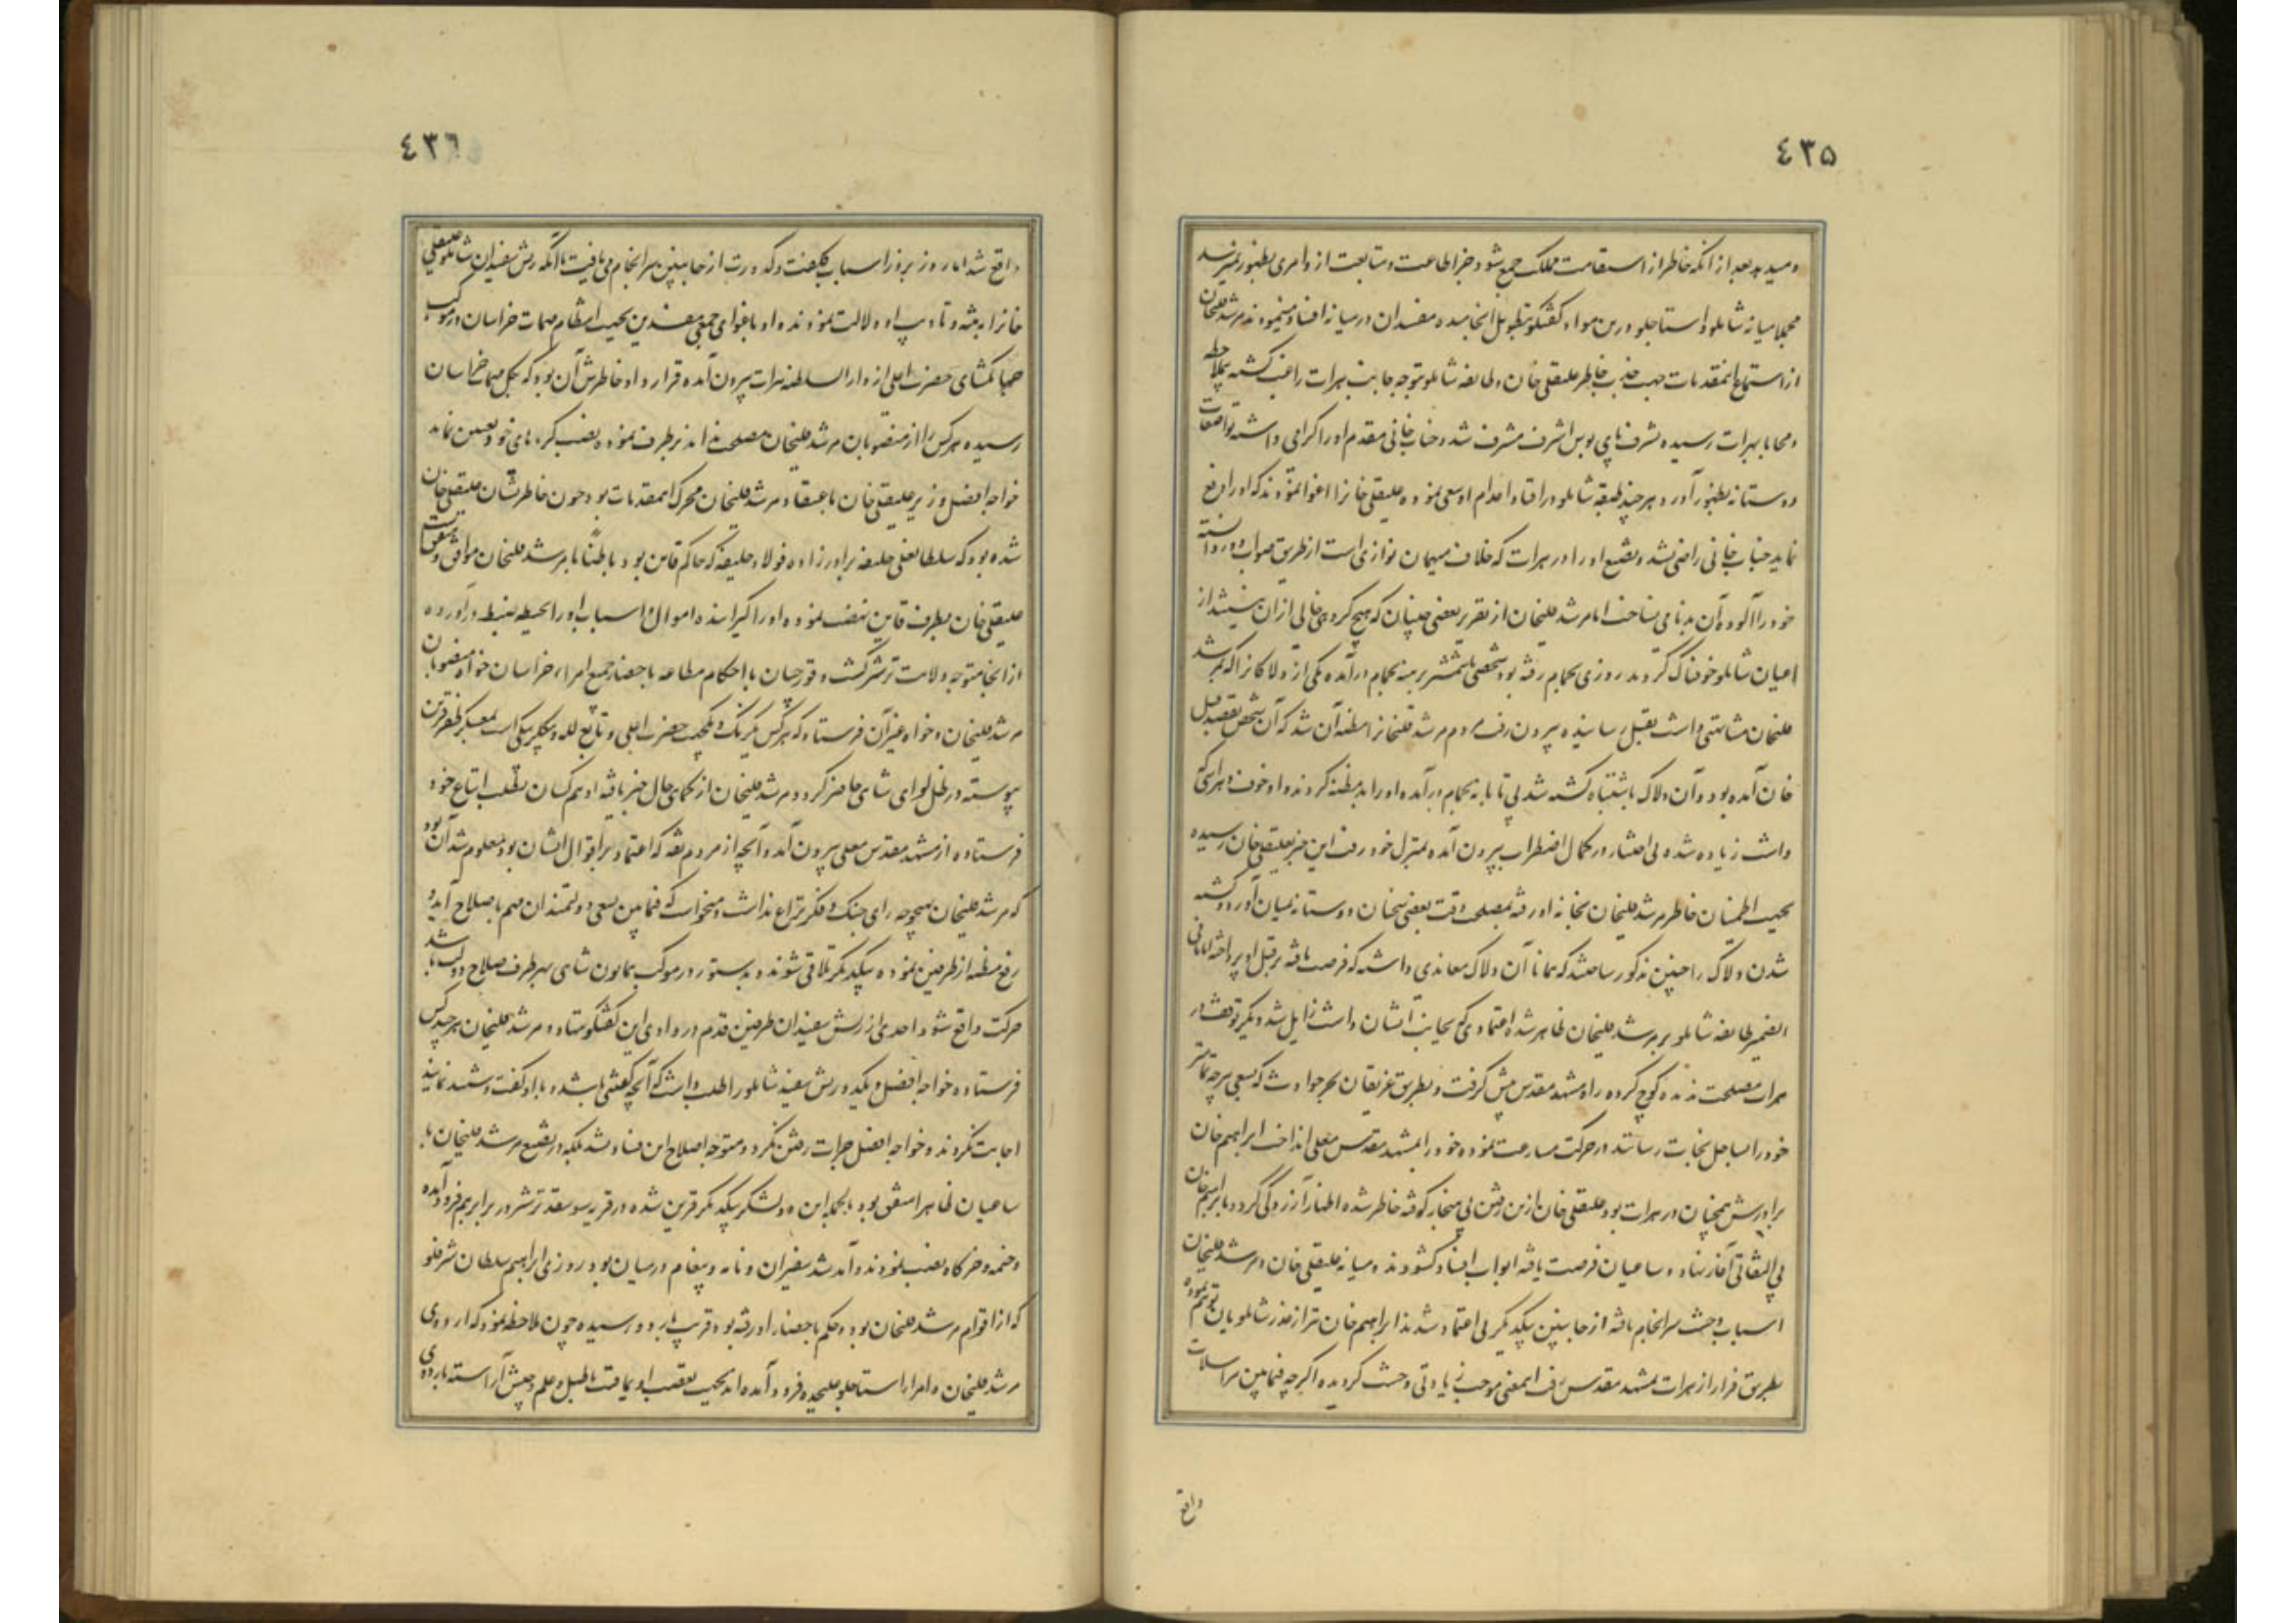 ٤٣٥
و میدید بعد از آنکه خاطر از استقامت ملک جمع شود جز اطاعت و متابعت از و امری بظهور نمیرسد
مجملا میانه شاملو و استاجلو درین مواد گفتگو بتطویل انجامیده مفسدان در میانه افساد مینمودند مرشد قلیخان
از استماع اینمقدمات جهت جذب خاطر علیقلی خان و طایفه شاملو بتوجه جانب هرات راغب گشته بملاحظه
و محابا بهرات رسیده شرف پای بوس اشرف مشرف شد و جناب خانی مقدم او را گرامی داشته تواضعات
دوستانه بظهور آورد و هر چند طبقه شاملو در افناء و اعدام او سعی نموده علیقلی خانرا اغوا نمودند که او را دفع
نماید جناب خانی راضی نشد و تضییع او را در هرات که خلاف میهمان نوازی است از طریق صواب دور دانسته
خود را آلوده آن بدنامی نساخت اما مرشد قلیخان از تقریر بعضی چنینان که هیچ گروهی خالی از آن نمیباشد از
اعیان شاملو خوفناک گردید روزی بحمام رفته بود شخصی با شمشیر برهنه بحمام در آمده یکی از دلاکانرا که بمرشد
قلیخان مشابهتی داشت بقتل رسانیده بیرون رفت مردم مرشد قلیخانرا مظنه آن شد که آن شخص بقصد قتل
خان آمده بود و آن دلاک باشتباه کشته شد بی تابانه بحمام در آمده او را بدمظنه کردند و او خوف و هراسی که
داشت زیاده شده بی اختیار در کمال اضطراب بیرون آمده بمنزل خود رفت این خبر بعلیقلی خان رسیده
بجهت اطمینان خاطر مرشد قلیخان بخانه او رفته بمصلحت وقت بعضی سخنان دوستانه بمیان آورد و کشته
شدن دلاک را چنین مذکور ساختند که همانا آن دلاک معاندی داشته که فرصت یافته بر قتل او پرداخته اما فی
الضمیر طایفه شاملو بر مرشد قلیخان ظاهر شده اعتمادی که بجانب ایشان داشت زایل شد و دیگر توقف در
هرات مصلحت ندیده کوچ کرده راه مشهد مقدس پیش گرفت و بطریق غریقان بحر حوادث که بسعی هر چه تمامتر
خود را بساحل نجات رسانند در حرکت مسارعت نموده خود را بمشهد مقدس معلی انداخت ابراهیم خان
برادرش همچنان در هرات بود علیقلی خان ازین رفتن بی هنجار کوفته خاطر شده اظهار آزردگی کرد و با ابراهیم خان
بی التفاتی آغاز نهاد و ساعیان فرصت یافته ابواب افساد گشودند و میانه علیقلی خان و مرشد قلیخان
اسباب وحشت سرانجام یافته از جانبین بیکدیگر بی اعتماد شدند ابراهیم خان نیز از غدر شاملویان توهم نموده
بطریق فرار از هرات بمشهد مقدس رفت اینمعنی موجب زیادتی وحشت گردیده اگر چه فیمابین مراسلات
واقع
٤٣٦
واقع شد اما روز بروز اسباب کلفت و کدورت از جانبین سرانجام می یافت تا آنکه ریش سفیدان شاملو علیقلی
خانرا به تنبیه و تادیب او دلالت نمودند و او باغوای جمعی مفسدین بجهت انتظام مهمات خراسان در موکب
جهانگشای حضرت اعلی از دار السلطنه هرات بیرون آمده قرار داد خاطرش آن بود که بکل مهمات خراسان
رسیده هر کس را از منصوبان مرشد قلیخان مصلحت نداند برطرف نموده نصب کرده های خود تعیین نماید
خواجه افضل وزیر علیقلی خان باعتقاد مرشد قلیخان محرک اینمقدمات بود چون خاطر نشان علیقلی خان
شده بود که سلطانعلی خلیفه برادر زاده فولاد خلیفه که حاکم قاین بود باطناً با مرشد قلیخان موافق و متفق است
علیقلی خان بطرف قاین نهضت نموده او را گیرانیده اموال و اسباب او را بحیطه ضبط در آورده
از آنجا متوجه ولایت ترشیز گشت و قورچیان با احکام مطاعه باحضار جمیع امراء خراسان خواه منصوبان
مرشد قلیخان و خواه غیر آن فرستاد که هر کس یکرنگ و یکجهت حضرت اعلی و تابع لله و بیگلربیگی است بمعسکر ظفر قرین
پیوسته در ظل لوای شاهی حاضر گردد و مرشد قلیخان از حکمای حال خبر یافته او هم کسان بطلب اتباع خود
فرستاده از مشهد مقدس معلی بیرون آمد و آنچه از مردم ثقه که اعتماد بر اقوال ایشان بود معلوم شد آن بود
که مرشد قلیخان بهیچوجه رای جنگ و فکر نزاع نداشت و میخواست که فیمابین بسعی دولتمندان مهم باصلاح آید و
رفع مظنه از طرفین نموده بیکدیگر تلاقی شوند و بدستور در موکب همایون شاهی بهر طرف صلاح دولت باشد
حرکت واقع شود احدی از ریش سفیدان طرفین قدم در وادی این گفتگو ننهاد و مرشد قلیخان هر چند کس
فرستاده خواجه افضل و یکدو ریش سفید شاملو را طلب داشت که آنچه گفتنی باشد با او گفت و شنید نمایند
اجابت نکردند و خواجه افضل جرات رفتن نکرد و متوجه اصلاح این فساد نشد بلکه در تضییع مرشد قلیخان با
ساعیان ظاهرا متفق بود بالجمله این دو لشکر بیکدیگر قرین شده در قریه سوسفد ترشیز در برابر هم فرود آمده
و خیمه و خرگاه نصب نمودند و آمد شد سفیران و نامه و پیغام در میان بود روزی ابراهیم سلطان شرفلو
که از اقوام مرشد قلیخان بود و حکم باحضار او رفته بود قریب باردو رسیده چون ملاحظه نمود که اردوی
مرشد قلیخان و امراء استاجلو علیحده فرود آمده اند بجهت تعصب اویماقیت با طبل و علم و جیش آراسته باردوی